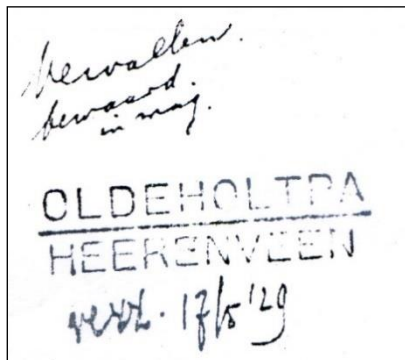 vervallen.
bewaard.
in mag.
OLDEHOLTPA
HEERENVEEN
verz. 17/5 '29